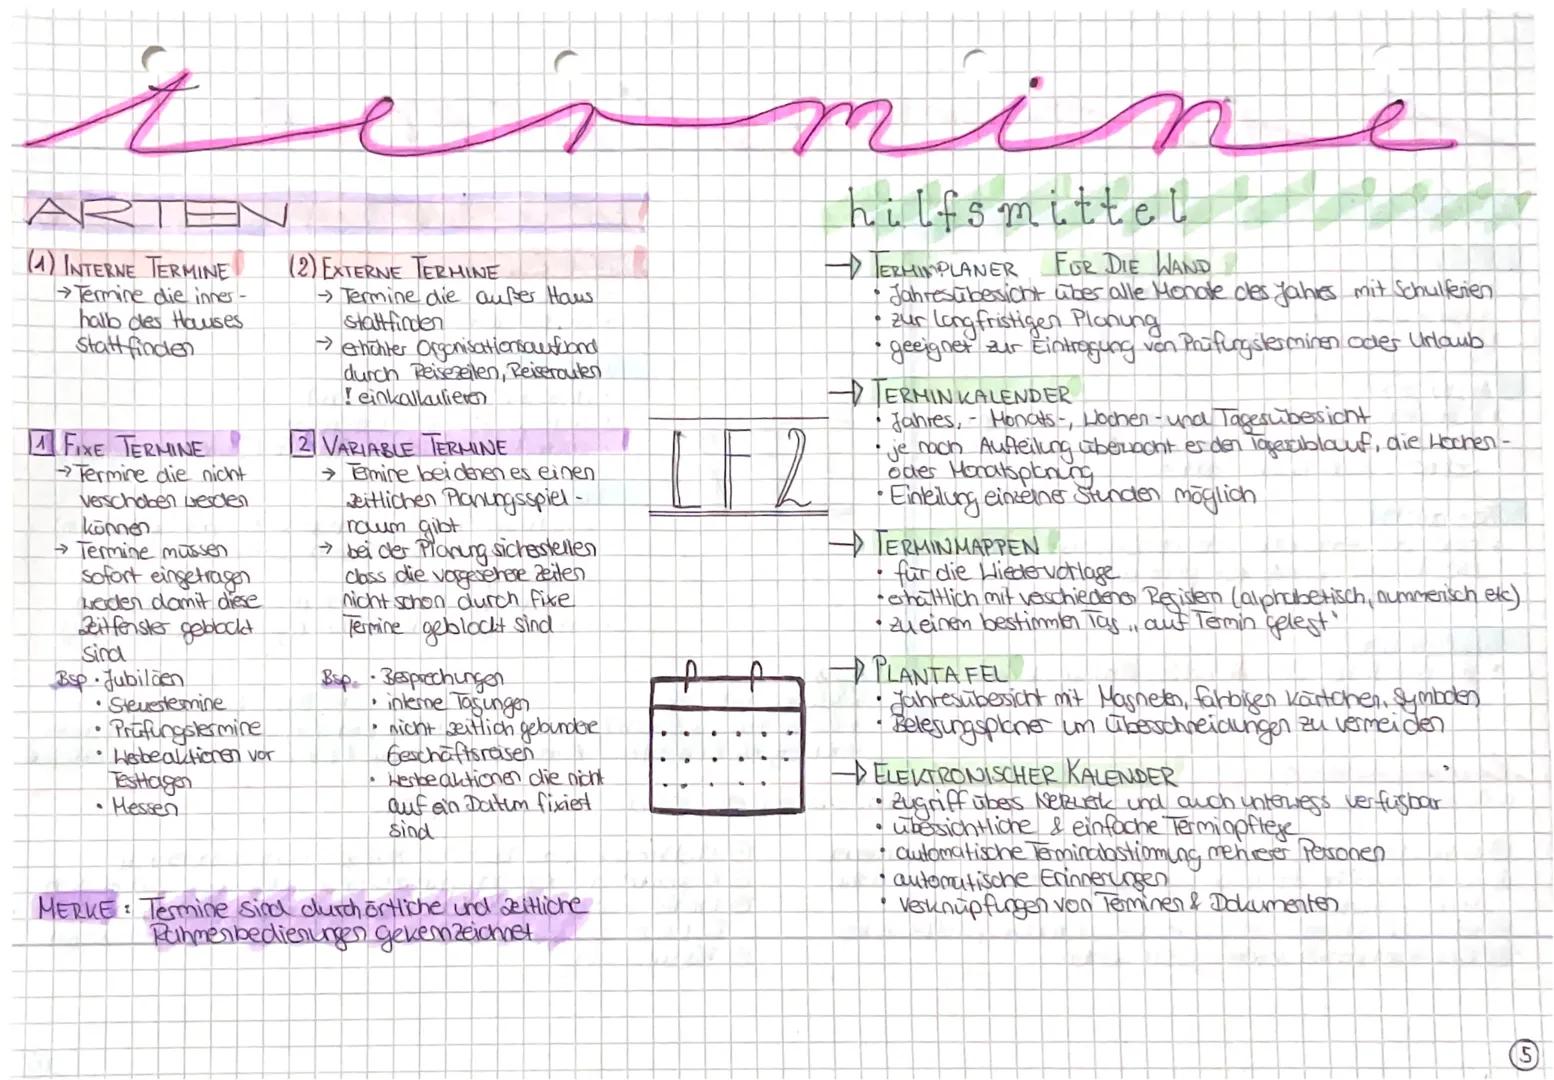 termine
ARTEN
(1) INTERNE TERMINE
→ Termine die inner-
halb des Hauses
stattfinden
(2) EXTERNE TERMINE
→ Termine die außer Haus
stattfinden
→ erhöhter Organisationsaufwand
durch Reisezeiten, Reiserouten
! einkalkulieren
1 FIXE TERMINE
→ Termine die nicht
verschoben werden
können
→ Termine müssen
sofort eingetragen
werden damit diese
Zeitfenster geblockt
sind
Bsp • Jubiläen
• Steuertermine
• Prüfungstermine
• Werbeaktionen vor
Festtagen
• Messen
2 VARIABLE TERMINE
→ Termine bei denen es einen
zeitlichen Planungsspiel-
raum gibt
→ bei der Planung sicherstellen
dass die vorgesehene Zeiten
nicht schon durch fixe
Termine geblockt sind
Bsp. • Besprechungen
• interne Tagungen
• nicht zeitlich gebundene
Geschäftsreisen
• Werbeaktionen die nicht
auf ein Datum fixiert
sind
MERKE: Termine sind durch örtliche und zeitliche
Rahmenbedienungen gekennzeichnet
LF2
hilfsmittel
→ TERMINPLANER FÜR DIE WAND
• Jahresübersicht über alle Monate des Jahres mit Schulferien
• zur langfristigen Planung
• geeignet zur Eintragung von Prüfungsterminen oder Urlaub
→ TERMINKALENDER
• Jahres, - Monats-, Wochen- und Tagesübersicht
• je nach Aufteilung überwacht er den Tagesablauf, die Wochen-
oder Monatsplanung
• Einteilung einzelner Stunden möglich
→ TERMINMAPPEN
• für die Wiedervorlage
• erhältlich mit verschiedener Registern (alphabetisch, nummerisch etc)
• zu einem bestimmten Tag „auf Termin gelegt"
→ PLANTAFEL
• Jahresübersicht mit Magneten, farbigen Kärtchen, Symbolen
• Belegungsplaner um Überschneidungen zu vermeiden
→ ELEKTRONISCHER KALENDER
• Zugriff übers Netzwerk und auch unterwegs verfügbar
• übersichtliche & einfache Terminpflege
• automatische Terminabstimmung mehrerer Personen
• automatische Erinnerungen
• Verknüpfungen von Terminen & Dokumenten
5